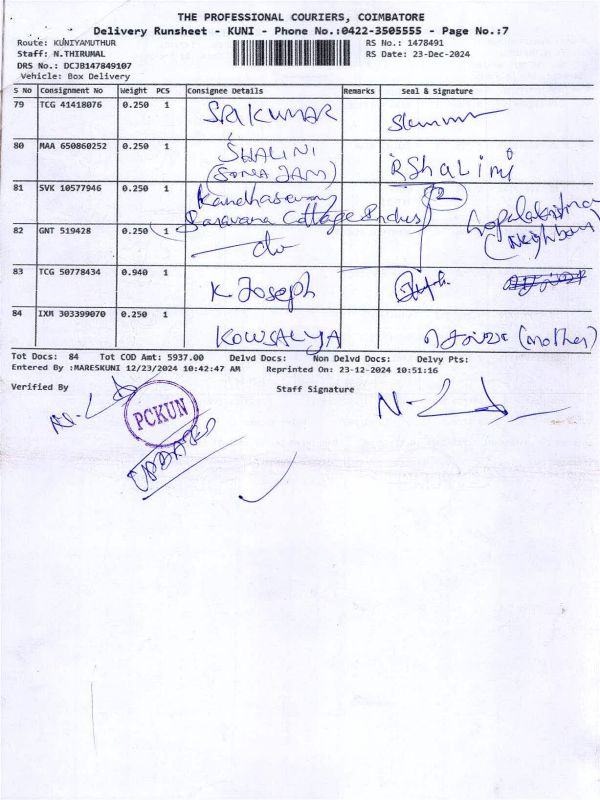 THE PROFESSIONAL COURIERS, COIMBATORE
Delivery Runsheet - KUNI - Phone No.:0422-3505555 - Page No.:7
Route: KUNIYAMUTHUR RS No.: 1478491
Staff: N.THIRUMAL RS Date: 23-Dec-2024
DRS No.: DCJB147849107
Vehicle: Box Delivery
S No Consignment No Weight PCS Consignee Details Remarks Seal & Signature
79 TCG 41418076 0.250 1 SRIKUMAR
80 MAA 650860252 0.250 1 SHALINI RShalini
(SONA JAM)
81 SVK 10577946 0.250 1 Kandhasamy
Saravana Cottage Indus) Gopalakrishna
82 GNT 519428 0.250 1 do (Neighbour)
83 TCG 50778434 0.940 1 K Joseph
84 IXM 303399070 0.250 1 KOWSALYA (mother)
Tot Docs: 84 Tot COD Amt: 5937.00 Delvd Docs: Non Delvd Docs: Delvy Pts:
Entered By :MARESKUNI 12/23/2024 10:42:47 AM Reprinted On: 23-12-2024 10:51:16
Verified By Staff Signature
PCKUN
UPDATED